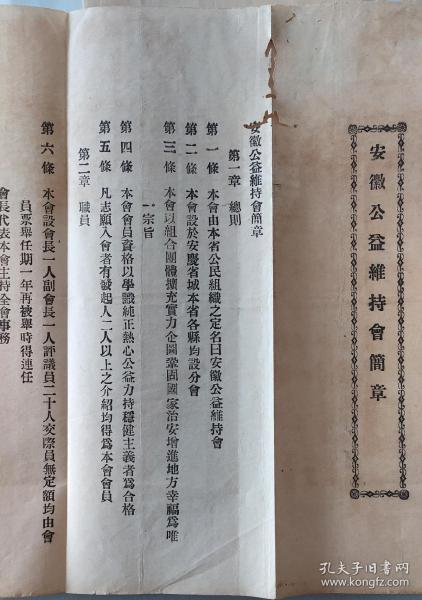 安徽公益維持會簡章
安徽公益維持會簡章
第一章 總則
第一條 本會由本省公民組織之定名曰安徽公益維持會
第二條 本會設於安慶省城本省各縣均設分會
第三條 本會以組合團體擴充實力企圖鞏固國家治安增進地方幸福爲唯
一宗旨
第四條 本會會員資格以學識純正熱心公益力持穩健主義者爲合格
第五條 凡志願入會者有發起人二人以上之介紹均得爲本會會員
第二章 職員
第六條 本會設會長一人副會長一人評議員二十人交際員無定額均由會
員票舉任期一年再被舉時得連任
會長代表本會主持全會事務
孔夫子旧书网
www.kongfz.com